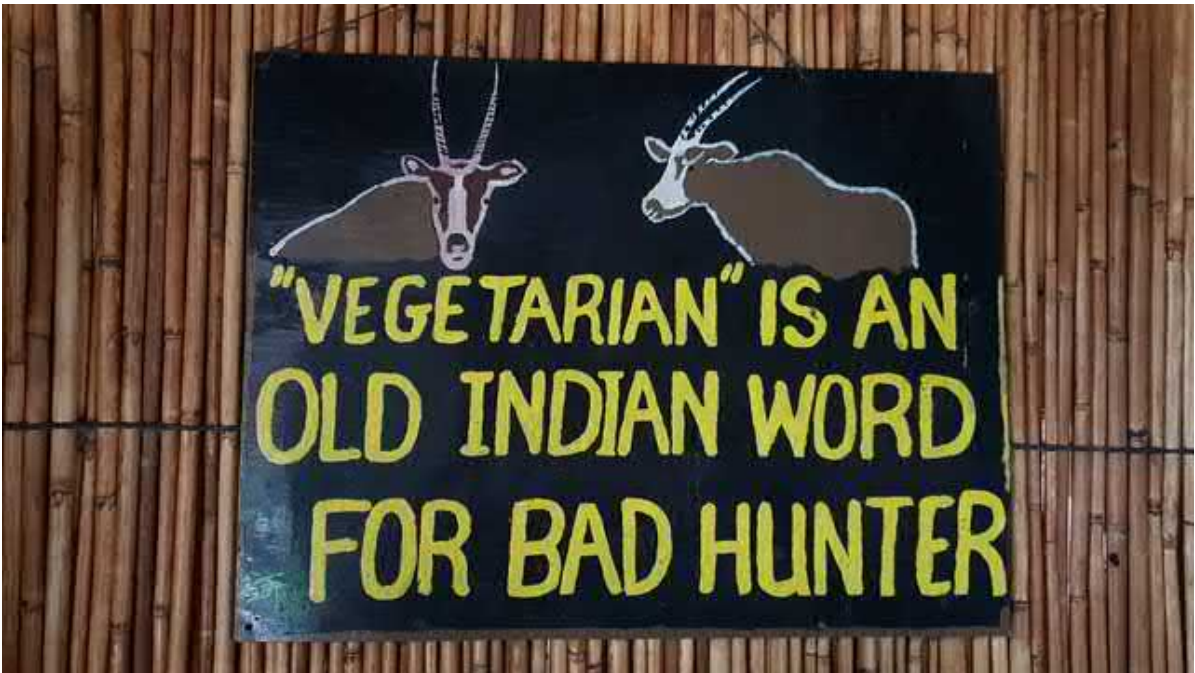 "VEGETARIAN" IS AN
OLD INDIAN WORD
FOR BAD HUNTER